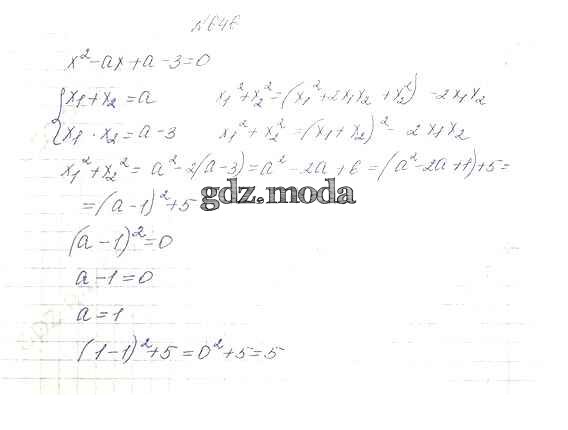 №646
x²-ax+a-3=0
{x₁+x₂=a x₁²+x₂²=(x₁²+2x₁x₂+x₂²)-2x₁x₂
{x₁·x₂=a-3 x₁²+x₂²=(x₁+x₂)²-2x₁x₂
x₁²+x₂²=a²-2(a-3)=a²-2a+6=(a²-2a+1)+5=
=(a-1)²+5
gdz.moda
(a-1)²=0
a-1=0
a=1
(1-1)²+5=0²+5=5